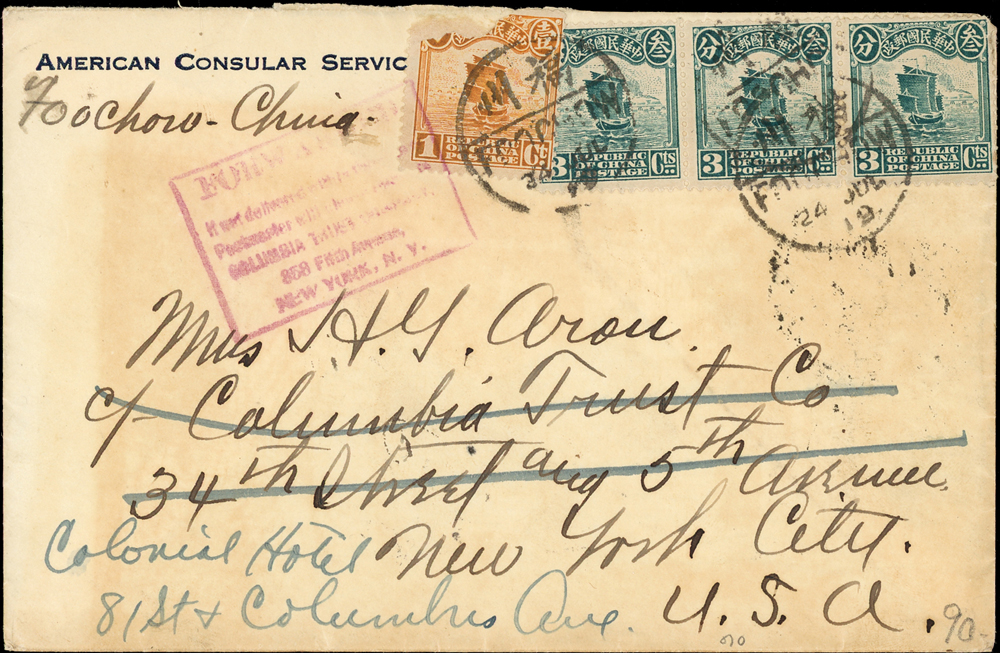 AMERICAN CONSULAR SERVIC
Foochow - China.
壹
1 Ct.
REPUBLIC OF CHINA POSTAGE
中華民國郵政
叁
3 Cts
REPUBLIC OF CHINA POSTAGE
分 中華民國郵政 叁
3 Cts
REPUBLIC OF CHINA POSTAGE
分 中華民國郵政 叁
3 Cts
REPUBLIC OF CHINA POSTAGE
FOOCHOW
FOOCHOW
24 JUL
19
If not delivered
Postmaster will
COLUMBIA TRUST
358 Fifth Avenue,
NEW YORK, N. Y.
H. G. Aron
c/ Columbia Trust Co
34th Street and 5th Avenue
New York City.
U. S. A.
Colonial Hotel
81 St & Columbus Ave.
90